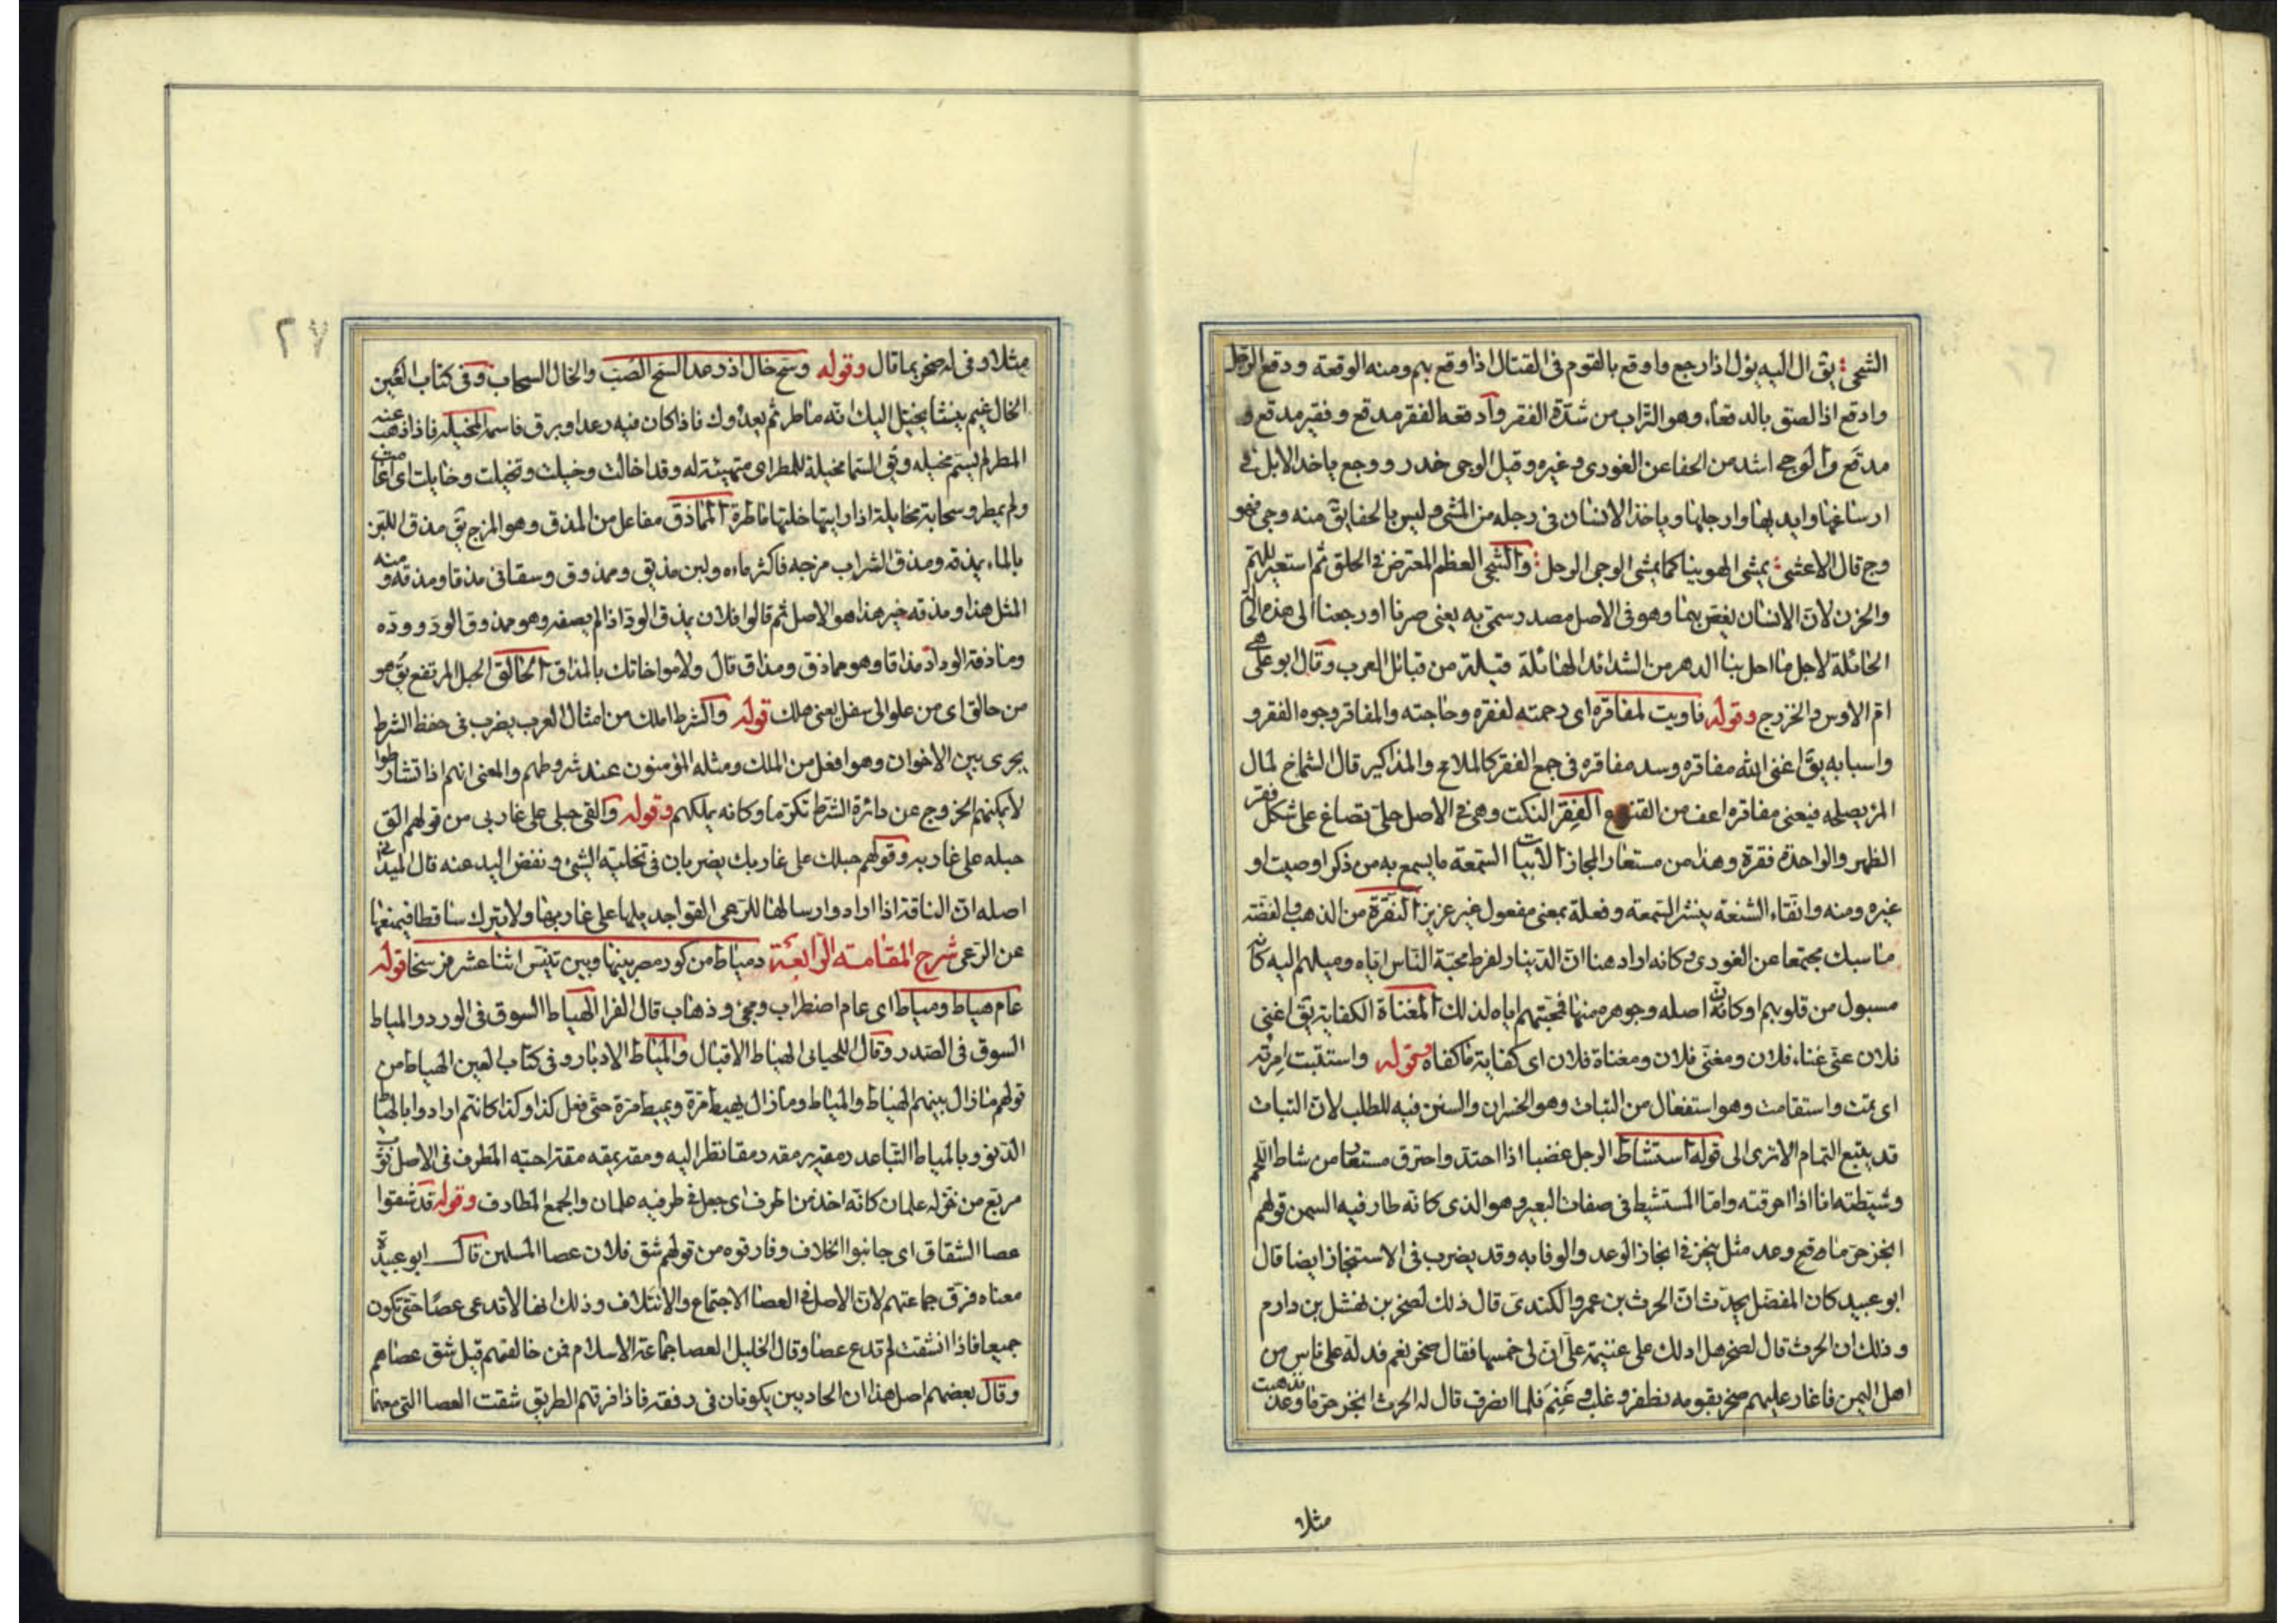 الشجى: يق ال اليه يؤل اذا رجع واوقع بالقوم فى القتال اذا وقع بهم ومنه الوقعة ودقع الرجل
وادقع اذا لصق بالدقعاء وهو التراب من شدة الفقر وادقعه الفقر مدقع وفقير مدقع و
مدقع والوجى اشد من الحفا عن الغورى وغيره وقيل الوجى خدر ووجع ياخذ الابل فى
ارساغها وايديها وارجلها وياخذ الانسان فى رجله من المشى وليس بالحفا يق منه وجى فهو
وج قال الاعشى: يمشى الهوينا كما يمشى الوجى الوحل: والشجى العظم المعترض فى الحلق ثم استعير للهم
والحزن لان الانسان يغص بهما وهو فى الاصل مصدر سمى به يعنى صرنا اورجعنا الى هذه الحا
الحائلة لاجل ما احل بنا الدهر من الشدائد الهائلة قيلة من قبائل العرب وقال ابو على هى
ام الاوس والخزرج وقوله فاويت لمفاقره اى رحمته لفقره وحاجته والمفاقر وجوه الفقر و
واسبابه يق اغنى الله مفاقره وسد مفاقره فى جمع الفقر كالملامح والمذاكير قال الشماخ لمال
المرء يصلحه فيغنى مفاقره اعف من القنوع الفقر النكت وهى فى الاصل حلى تصاغ على شكل فقر
الظهر والواحدة فقرة وهذا من مستعار المجاز الابيات السمعة ما يسمع به من ذكر او صيت او
غيره ومنه واتقاء الشنعة ينشر السمعة وفعلة بمعنى مفعول غير عزيز النقرة من الذهب والفضة
ما سبك مجتمعا عن الغورى وكانه اراد هنا ان الدينار لفرط محبة الناس اياه وميلهم اليه كانه
مسبول من قلوبهم او كانت اصله وجوهره منها فمحبتهم اياه لذلك المغناة الكفاية يق اغنى
فلان عنى غناء فلان ومغنى فلان ومغناة فلان اى كفاية فاكفاه وقوله واستتبت امرته
اى تمت واستقامت وهو استفعال من التباب وهو الخسران والسين فيه للطلب لان التباب
قد يتبع التمام الا ترى الى قوله استشاط الرجل غضبا اذا احتد واحترق مستعار من شاط اللحم
وشيطته انا اذا احرقته واما المستشيط فى صفات البعير وهو الذى كانه طار فيه السمن قولهم
انجز حر ما وعد مثل ينجز فى انجاز الوعد والوفا به وقد يضرب فى الاستنجاز ايضا قال
ابو عبيد كان المفضل يحدث ان الحرث بن عمرو الكندى قال ذلك لصخر بن نهشل بن دارم
وذلك ان الحرث قال لصخر هل ادلك على غنيمة على ان لى خمسها فقال صخر نعم فدله على ناس من
اهل اليمن فاغار عليهم صخر بقومه فظفر وغلب وغنم فلما انصرف قال له الحرث انجز حر ما وعد فذهبت
مثلا
٢٧
مثلا وفى له صخر بما قال وقوله وسح خال اذ وعد السح الصب والخال السحاب وفى كتاب العين
الخال غيم ينشا يخيل اليك انه ماطر ثم يعدوك فاذا كان فيه رعد او برق فاسمه المخيله فاذا ذهب عنه
المطر لم يسم مخيله وفى السما مخيلة للمطر اى متهيئة له وقد اخالت وخيلت وتخيلت وخايلت اى اغامت
ولم يمطر وسحابة مخايلة اذا رايتها خلتها ماطرة المماذق مفاعل من المذق وهو المزج يق مذق اللبن
بالماء يمذقه ومذق الشراب مزجه فاكثر ماءه ولبن مذيق وممذوق وسقانى مذقا ومذقة ومنه
المثل هذا ومذقه خير هذا هو الاصل ثم قالوا فلان يمذق الود اذا لم يصفه وهو ممذوق الود ووده
وماذقه الوداد مذاقا وهو مماذق ومذاق قال ولا مواخاتك بالمذاق الحالق الجبل المرتفع يق هو
من حالق اى من علو الى سفل يعنى هلك قوله والشرط املك من امثال العرب يضرب فى حفظ الشرط
يجرى بين الاخوان وهو افعل من الملك ومثله المؤمنون عند شروطهم والمعنى انهم اذا تشارطوا
لا يمكنهم الخروج عن دائرة الشرط تكرما وكانه يملكهم وقوله والقى حبلى على غاربى من قولهم الق
حبله على غاربه وقولهم حبلك على غاربك يضربان فى تخلية الشئ ونفض اليد عنه قال الميدانى
اصله ان الناقة اذا ارادوا ارسالها للرعى القوا جديلها على غاربها ولا يترك ساقطا فيمنعها
عن الرعى شرح المقامة الرابعة دمياط من كور مصر بينها وبين تنيس اثنا عشر فرسخا قوله
عام هياط ومياط اى عام اضطراب ومجئ وذهاب قال الفرا الهياط السوق فى الورد والمياط
السوق فى الصدر وقال اللحيانى الهياط الاقبال والمياط الادبار وفى كتاب العين الهياط من
قولهم ما زال بينهم الهياط والمياط وما زال يهيط مرة ويميط مرة حتى فعل كذا وكذا كانهم ارادوا بالهياط
الدنو وبالمياط التباعد رمقه يرمقه رمقا نظر اليه ومقه يمقه مقة احبه المطرف فى الاصل ثوب
مربع من خز له علمان كانه اخذ من اطرف اى جعل فى طرفيه علمان والجمع المطارف وقوله قد شقوا
عصا الشقاق اى جانبوا الخلاف وفارقوه من قولهم شق فلان عصا المسلمين قال ابو عبيدة
معناه فرق جماعتهم لان الاصل فى العصا الاجتماع والائتلاف وذلك انها لا تدعى عصا حتى تكون
جميعا فاذا انشقت لم تدع عصا وقال الخليل العصا جماعة الاسلام فمن خالفهم قيل شق عصاهم
وقال بعضهم اصل هذا ان الحاديين يكونان فى رفقة فاذا فرقهم الطريق شقت العصا التى معهما